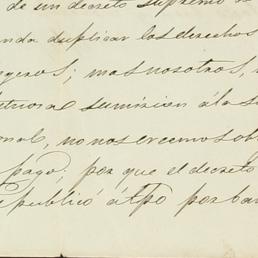 de un decreto supremo de
anda duplicar los derechos
ngeros; mas nosotros,
etuosa sumision á la s
onal, no nos creemos ob
pago; por que el decreto
publicó á tpo por ban